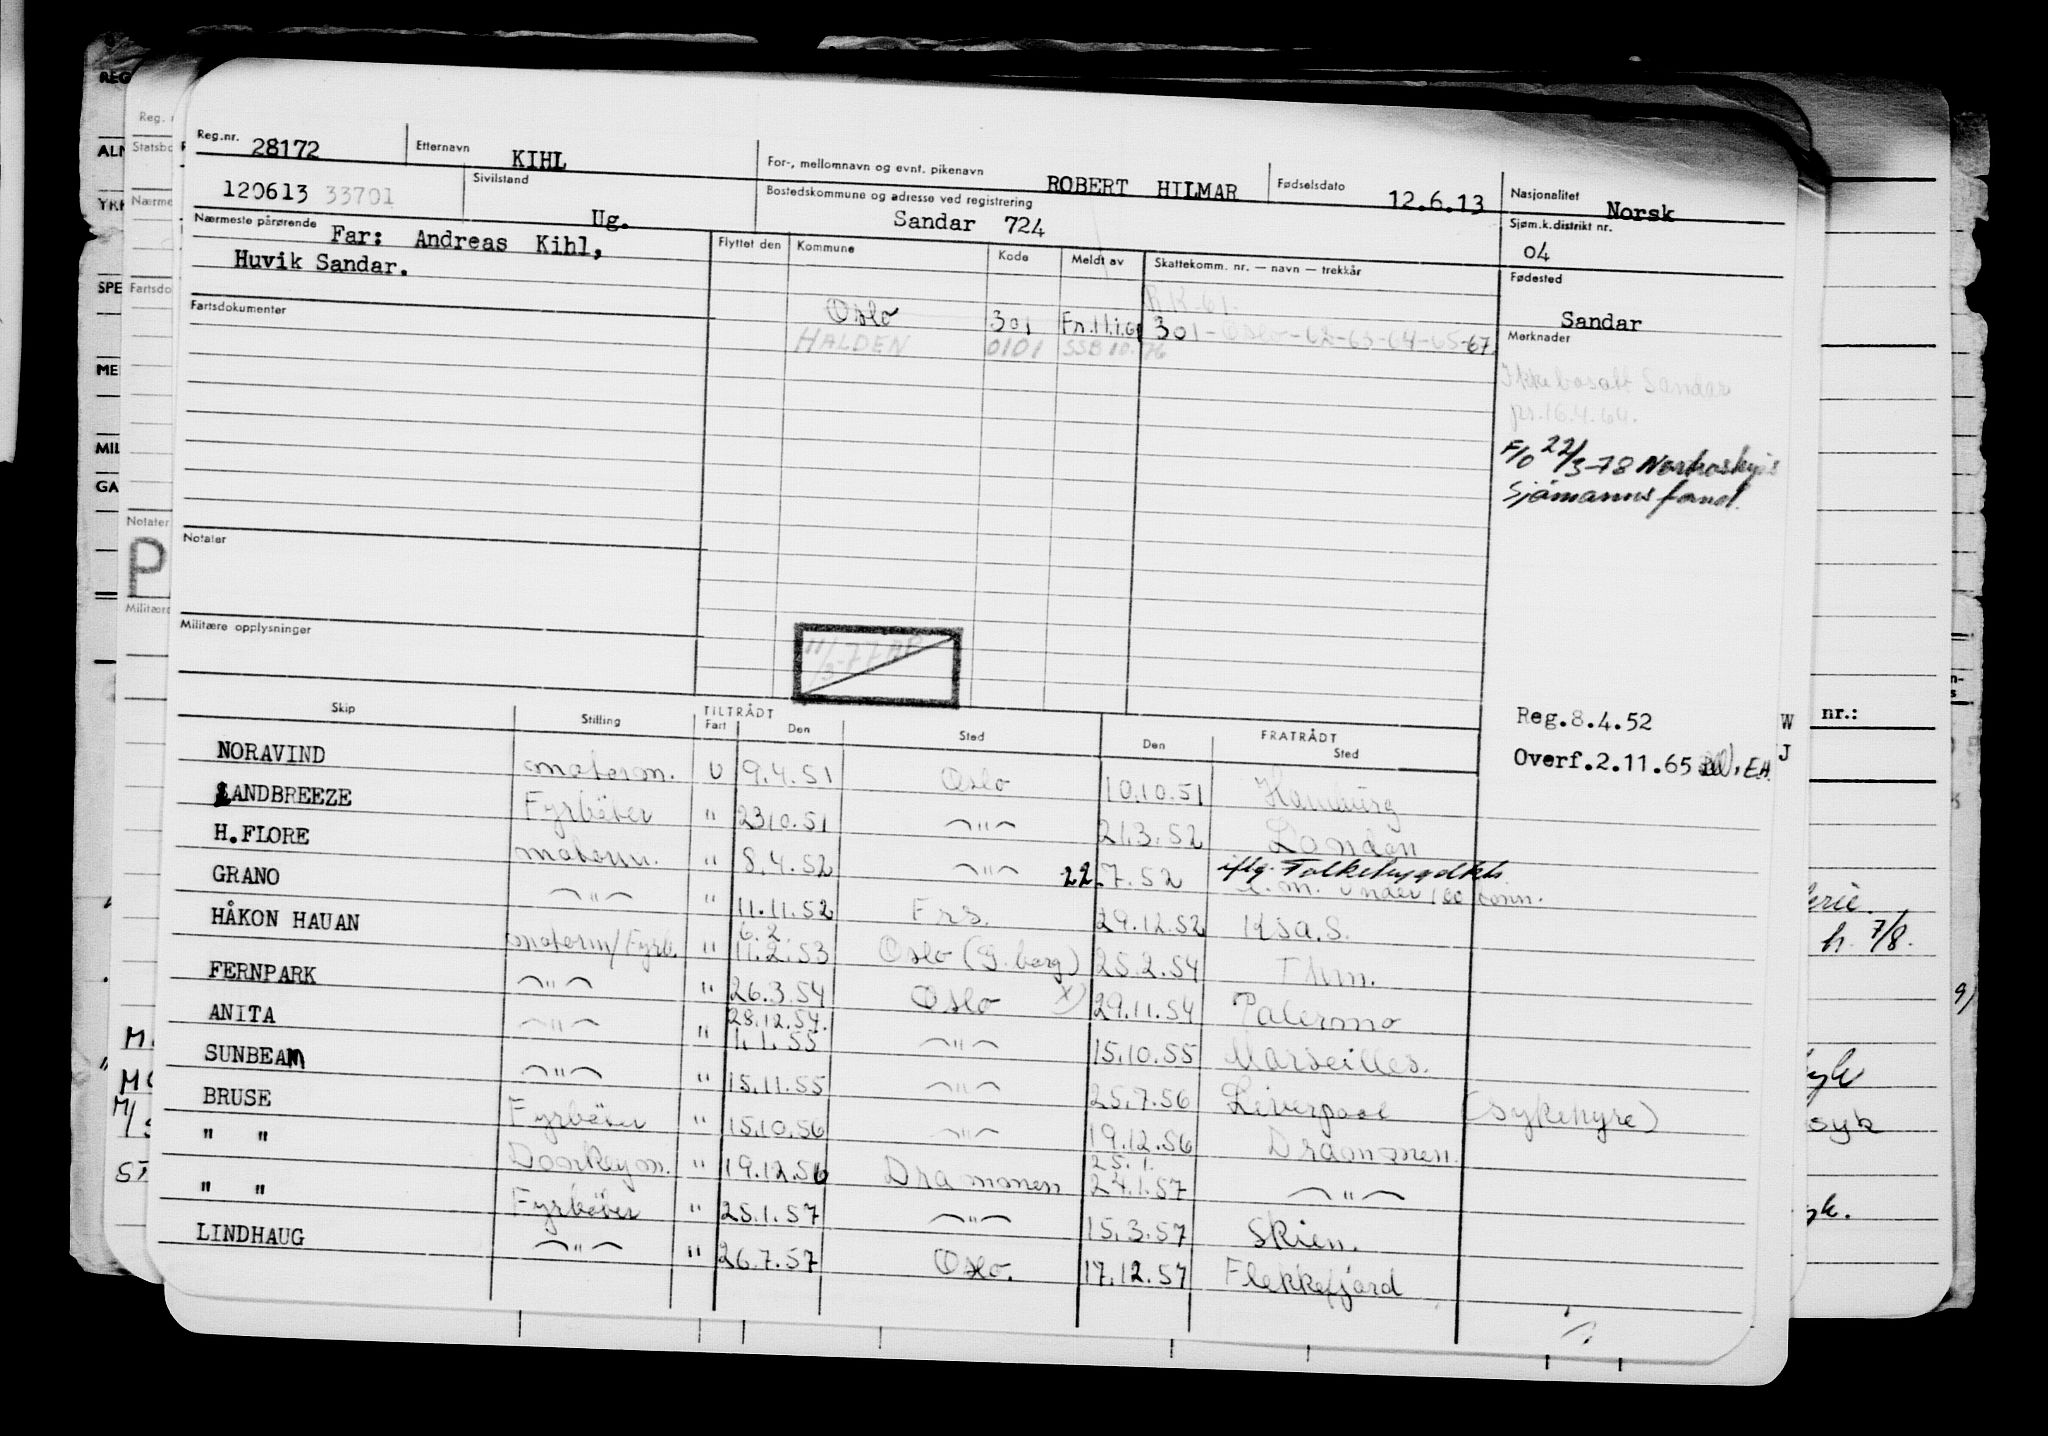 Reg.nr. 28172 Etternavn KIHL For-, mellomnavn og evnt. pikenavn ROBERT HILMAR Fødselsdato 12.6.13 Nasjonalitet Norsk
120613 33701 Sivilstand Ug. Bostedskommune og adresse ved registrering Sandar 724 Sjøm.k.distrikt nr. 04
Nærmeste pårørende Far: Andreas Kihl,
Huvik Sandar.
Flyttet den Kommune Kode Meldt av Skattekomm. nr. — navn — trekkår
Fødested
Sandar
R.K.61.
Fartsdokumenter
Oslo 301 Fr.11.1.61 301-Oslo-62-63-64-65-67.
HALDEN 0101 SSB 10.76
Merknader
Ikke bosatt Sandar
pr.16.4.64.
F/O 22/3-78
Sjømanns fond.
Notater
Militære opplysninger
11/3-77
Reg.8.4.52
Overf.2.11.65 EA.
Skip Stilling TILTRÅDT Fart Den Sted FRATRÅDT Den Sted
NORAVIND motorm. U 9.4.51 Oslo 10.10.51 Hamburg
SANDBREEZE Fyrbøter " 23.10.51 " 21.3.52 London
H.FLORE motorm. " 8.4.52 " 22.7.52 iflg.
under 100 tonn.
GRANO " " 11.11.52 Frs. 29.12.52 Krsa.S.
6.2.
HÅKON HAUAN motorm/Fyrb. " 11.2.53 Oslo (G.borg) 25.2.54 Thm.
FERNPARK " " 26.3.54 Oslo X) 29.11.54 Palermo
28.12.54.
ANITA " " 1.1.55 " 15.10.55 Marseilles.
SUNBEAM " " 15.11.55 " 25.7.56 Liverpool (sykehyre)
BRUSE Fyrbøter " 15.10.56 " 19.12.56 Drammen.
25.1.
" " Donkeym. " 19.12.56 Drammen 24.1.57 "
" " Fyrbøter " 25.1.57 " 15.3.57 Skien.
LINDHAUG " " 26.7.57 Oslo. 17.12.57 Flekkefjord
REG
ALM
YRK
SPE
MIL
GA
Reg. n
Statsbo
Nærme
Fartsdo
Notater
P
Militære
nr.:
W
J
h. 7/8.
syk